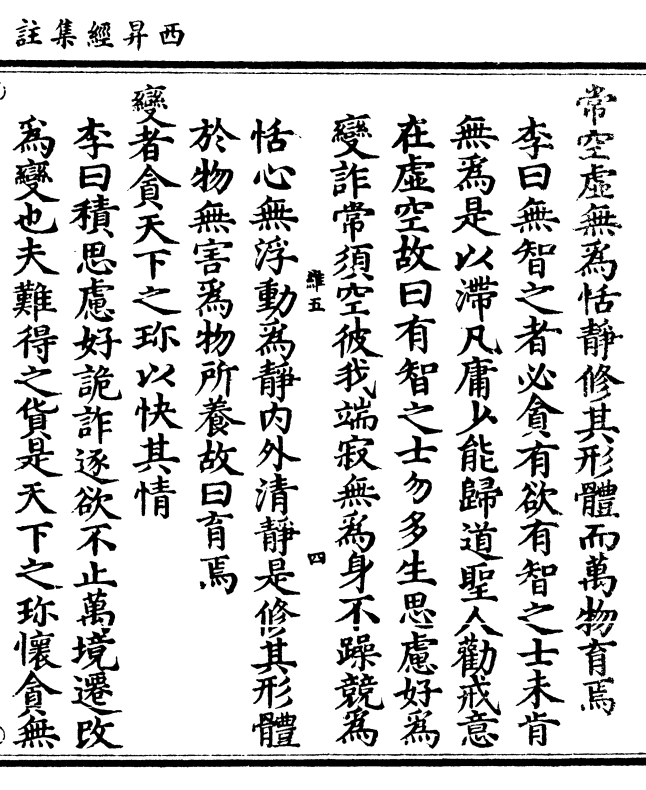 西昇經集註
常空虛無爲恬靜修其形體而萬物育焉
李曰無智之者必貪有欲有智之士未肯
無爲是以滯凡庸少能歸道聖人勸戒意
在虛空故曰有智之士勿多生思慮好爲
變詐常須空彼我端寂無爲身不躁競爲
維五
四
恬心無浮動爲靜內外清靜是修其形體
於物無害爲物所養故曰育焉
變者貪天下之珎以快其情
李曰積思慮好詭詐逐欲不止萬境遷改
爲變也夫難得之貨是天下之珎懷貪無